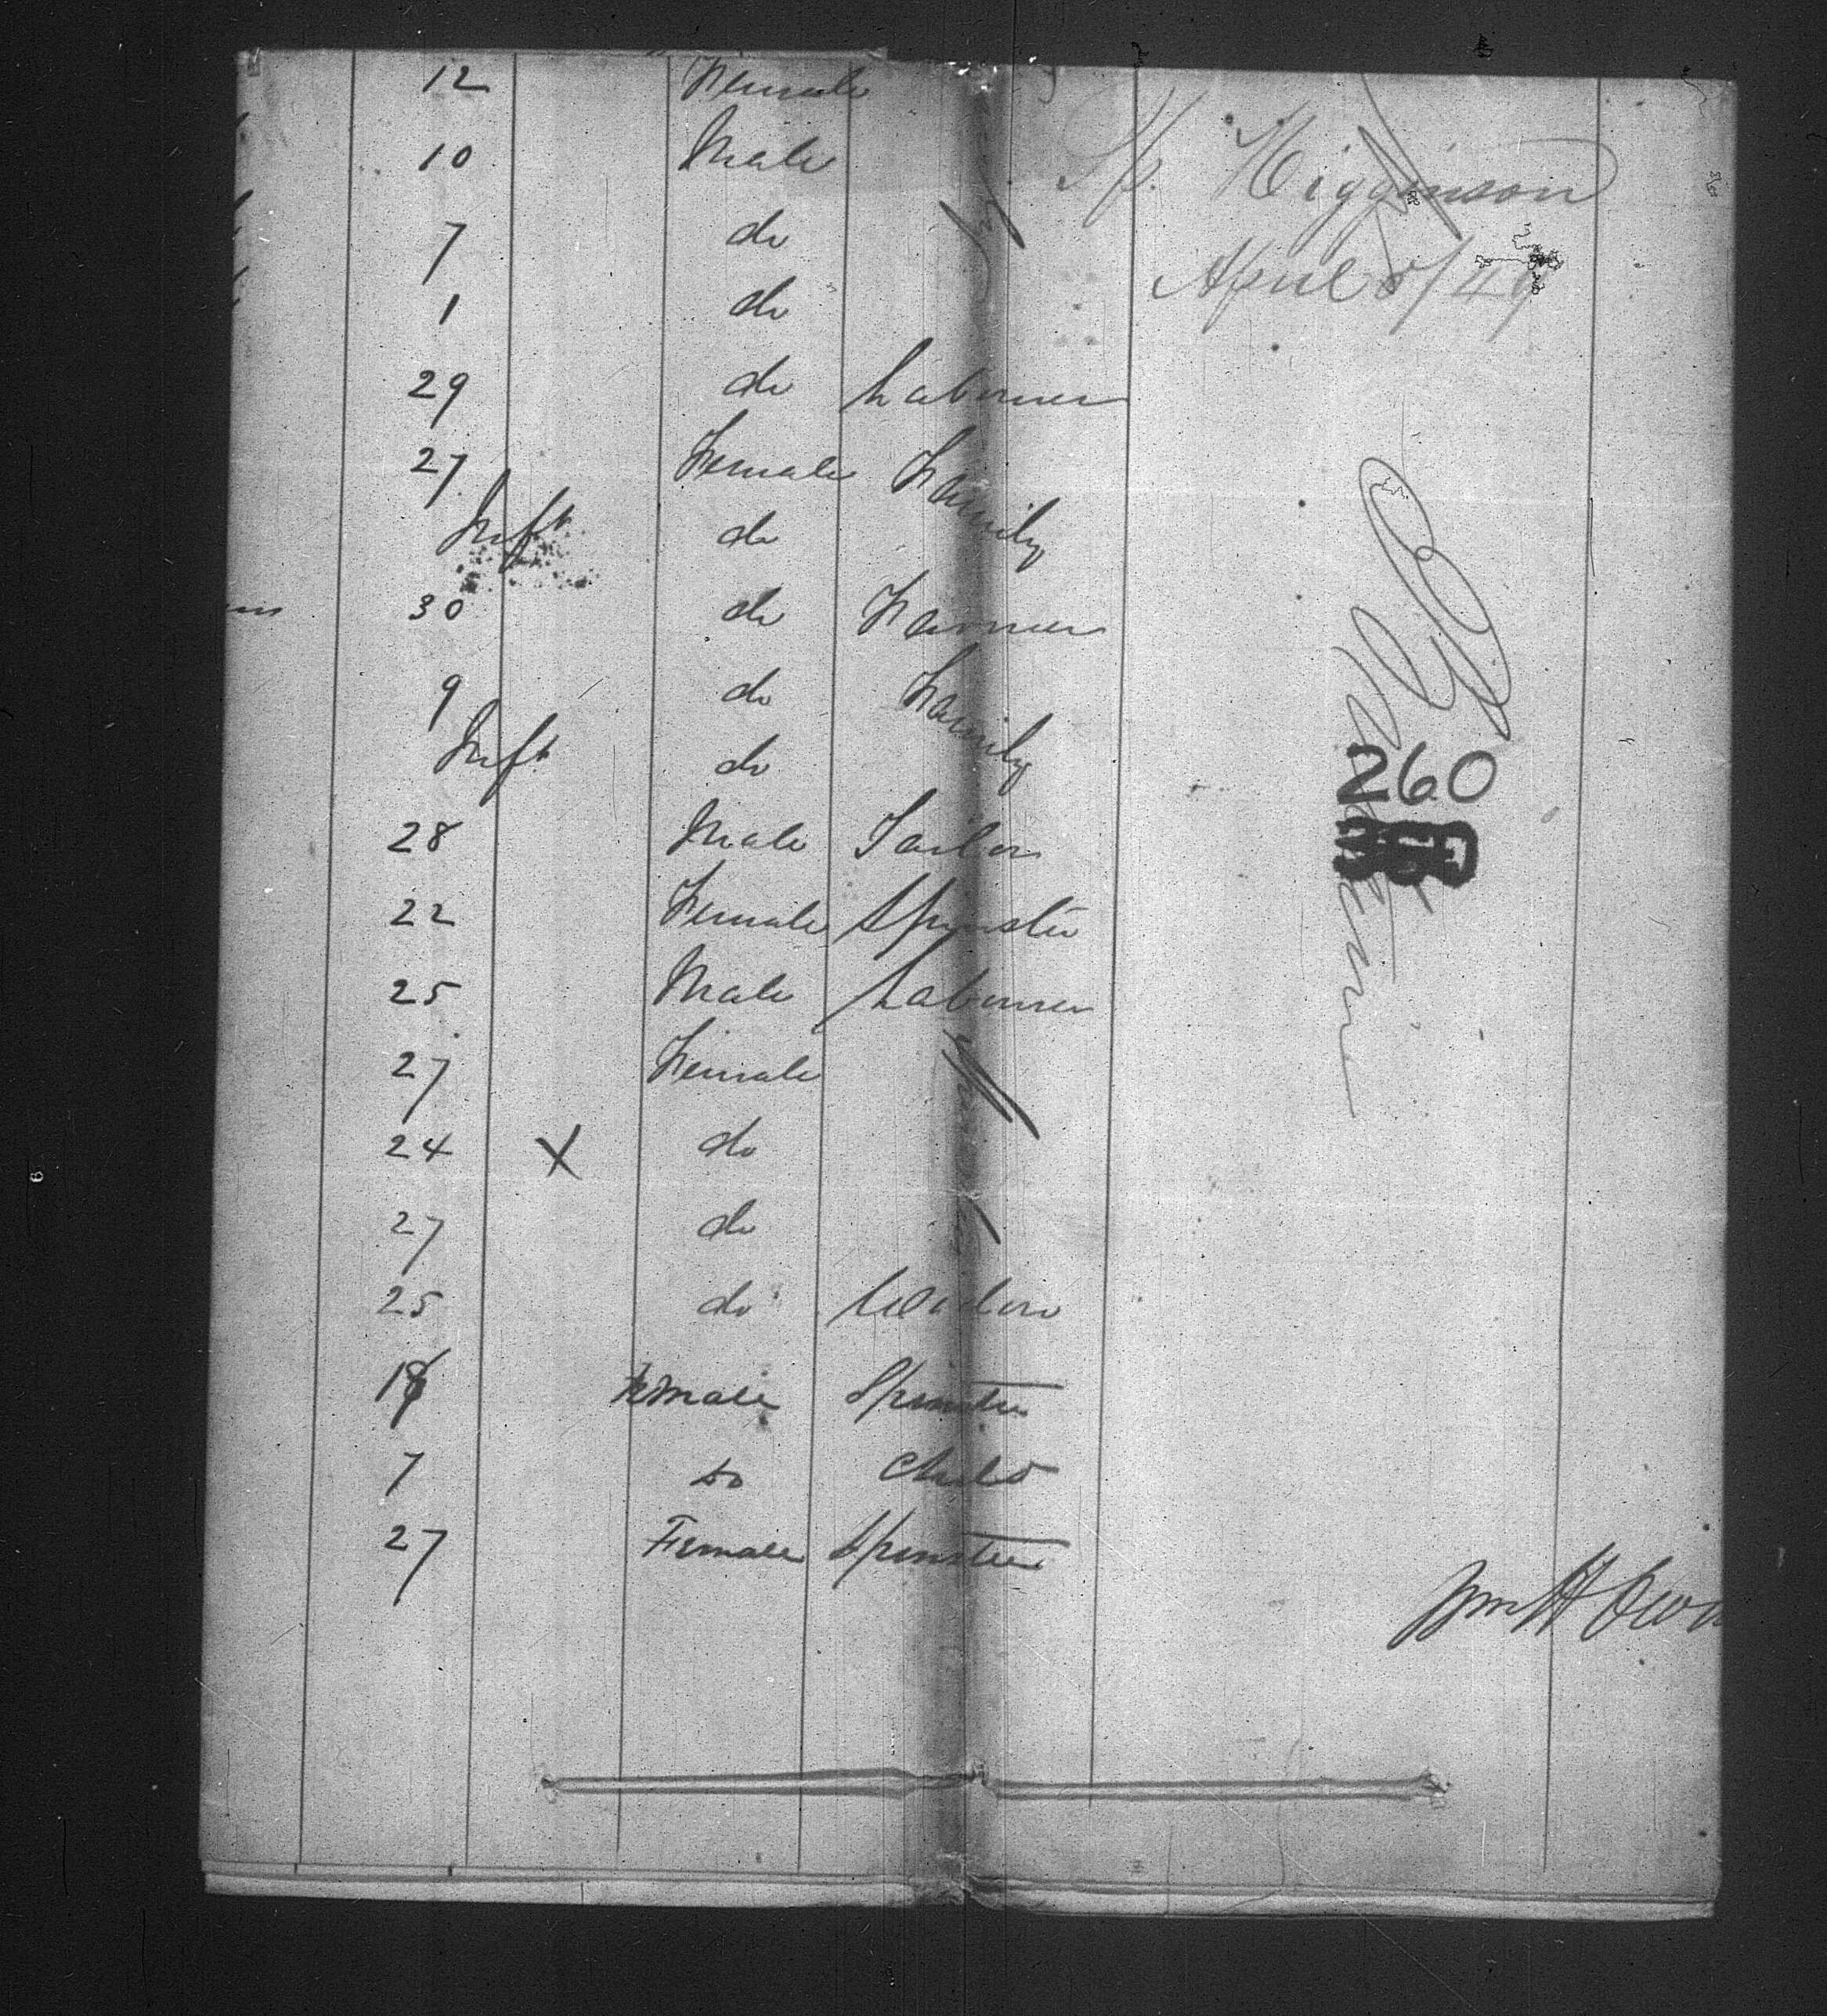 12 Female
10 Male
7 do
1 do
29 do Labourer
27 Female Family
Inft do
30 do Farmer
9 do Family
Inft do
28 Male Tailor
22 Female Spinster
25 Male Labourer
27 Female
24 X do
27 do
25 do
18 Female Spinster
7 Do Child
27 Female Spinster
Sp. Higginson
April 5/49
260
Wm H